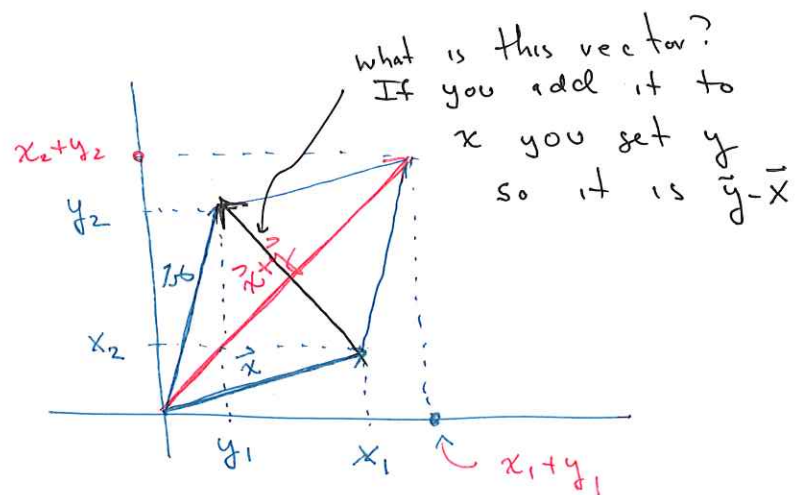 what is this vector?
If you add it to
x you get y
so it is y⃗-x⃗
x₂+y₂
y₂
x⃗+y⃗
x₂
x⃗
y₁
x₁
x₁+y₁